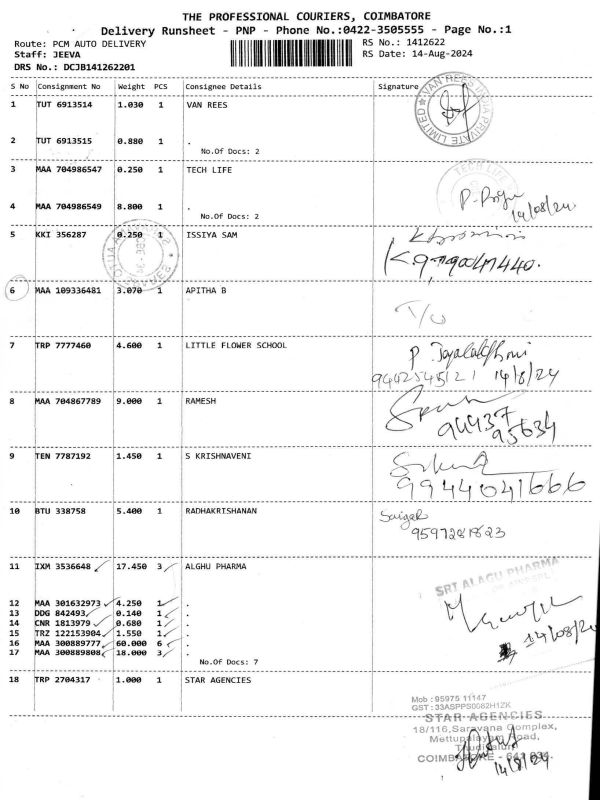 THE PROFESSIONAL COURIERS, COIMBATORE
Delivery Runsheet - PNP - Phone No.:0422-3505555 - Page No.:1
Route: PCM AUTO DELIVERY RS No.: 1412622
Staff: JEEVA RS Date: 14-Aug-2024
DRS No.: DCJB141262201
S No Consignment No Weight PCS Consignee Details Signature
1 TUT 6913514 1.030 1 VAN REES
VAN REES INDIA PRIVATE LIMITED
2 TUT 6913515 0.880 1 .
No.Of Docs: 2
3 MAA 704986547 0.250 1 TECH LIFE
TECH LIFE
4 MAA 704986549 8.800 1 .
14/08/24
No.Of Docs: 2
5 KKI 356287 0.250 1 ISSIYA SAM
6 MAA 109336481 3.070 1 APITHA B
7 TRP 7777460 4.600 1 LITTLE FLOWER SCHOOL
14/8/24
8 MAA 704867789 9.000 1 RAMESH
94437
95634
9 TEN 7787192 1.450 1 S KRISHNAVENI
9944041666
10 BTU 338758 5.400 1 RADHAKRISHANAN
11 IXM 3536648 17.450 3 ALGHU PHARMA
SRI ALAGU PHARMA
12 MAA 301632973 4.250 1 .
13 DDG 842493 0.140 1 .
14 CNR 1813979 0.680 1 .
15 TRZ 122153904 1.550 1 .
16 MAA 300889777 60.000 6 .
17 MAA 300889808 18.000 3 .
14/08/24
No.Of Docs: 7
18 TRP 2704317 1.000 1 STAR AGENCIES
Mob : 95975 11147
GST : 33ASPPS0082H1ZK
STAR AGENCIES
18/116, Saravana Complex,
Mettupalayam Road,
COIMBATORE
14/8/24